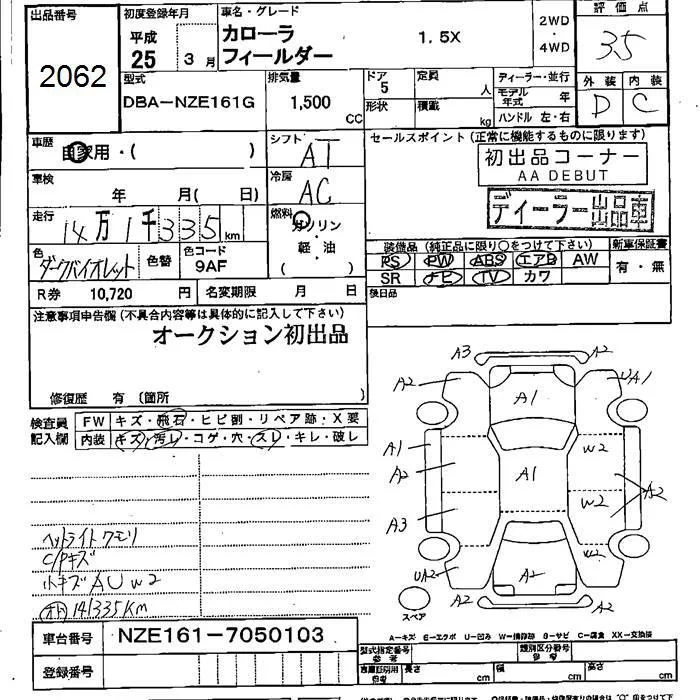 出品番号
2062
初度登録年月
平成
25 3月
車名・グレード
カローラ
フィールダー
1.5X
2WD
・
4WD
評価点
3.5
外装 内装
D C
型式
DBA-NZE161G
排気量
1,500
CC
ドア
5
定員
人
形状
積載
kg
ディーラー・並行
モデル年式 年
ハンドル 左・右
車歴
自家用・( )
シフト
AT
セールスポイント(正常に機能するものに限ります)
初出品コーナー
AA DEBUT
ディーラー出品車
車検
年 月( 日)
冷房
AC
走行
14万1千335km
燃料
ガソリン
・
軽・油
( )
色
ダークバイオレット
色替
色コード
9AF
装備品(純正品に限り○をつけて下さい)
PS PW ABS エアB AW
SR ナビ TV カワ
新車保証書
有・無
R券 10,720 円
名変期限 月 日
後日品
注意事項申告欄(不具合内容等は具体的に記入して下さい)
オークション初出品
修復歴 有 (箇所 )
検査員
記入欄
FW キズ・飛石・ヒビ割・リペア跡・X要
内装 キズ・汚レ・コゲ・穴・スレ・キレ・破レ
ヘッドライトクモリ
C/Pキズ
小キズAUW2
オド 141335Km
A3
A2
A2
UA1
A1
A1
A2
A3
A1
W2
W2
A2
W2
UA2
A2
A2
A2
スペア
A-キズ E-エクボ U-凹み W-補修跡 S-サビ C-腐食 XX-交換済
車台番号 NZE161-7050103
登録番号
型式指定番号
参考
類別区分番号
参考
参考
長さ cm
幅 cm
高さ cm